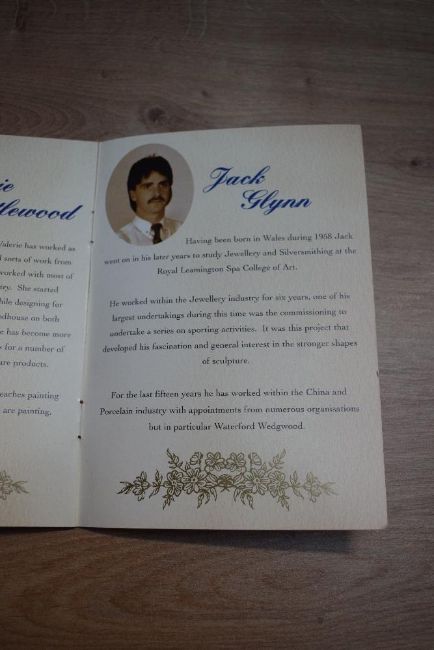 ie
lewood
Valerie has worked as
d sorts of work from
worked with most of
ry. She started
hile designing for
dhouse on both
e has become more
s for a number of
are products.
eaches painting
are painting,
Jack
Glynn
Having been born in Wales during 1958 Jack
went on in his later years to study Jewellery and Silversmithing at the
Royal Leamington Spa College of Art.
He worked within the Jewellery industry for six years, one of his
largest undertakings during this time was the commissioning to
undertake a series on sporting activities. It was this project that
developed his fascination and general interest in the stronger shapes
of sculpture.
For the last fifteen years he has worked within the China and
Porcelain industry with appointments from numerous organisations
but in particular Waterford Wedgwood.